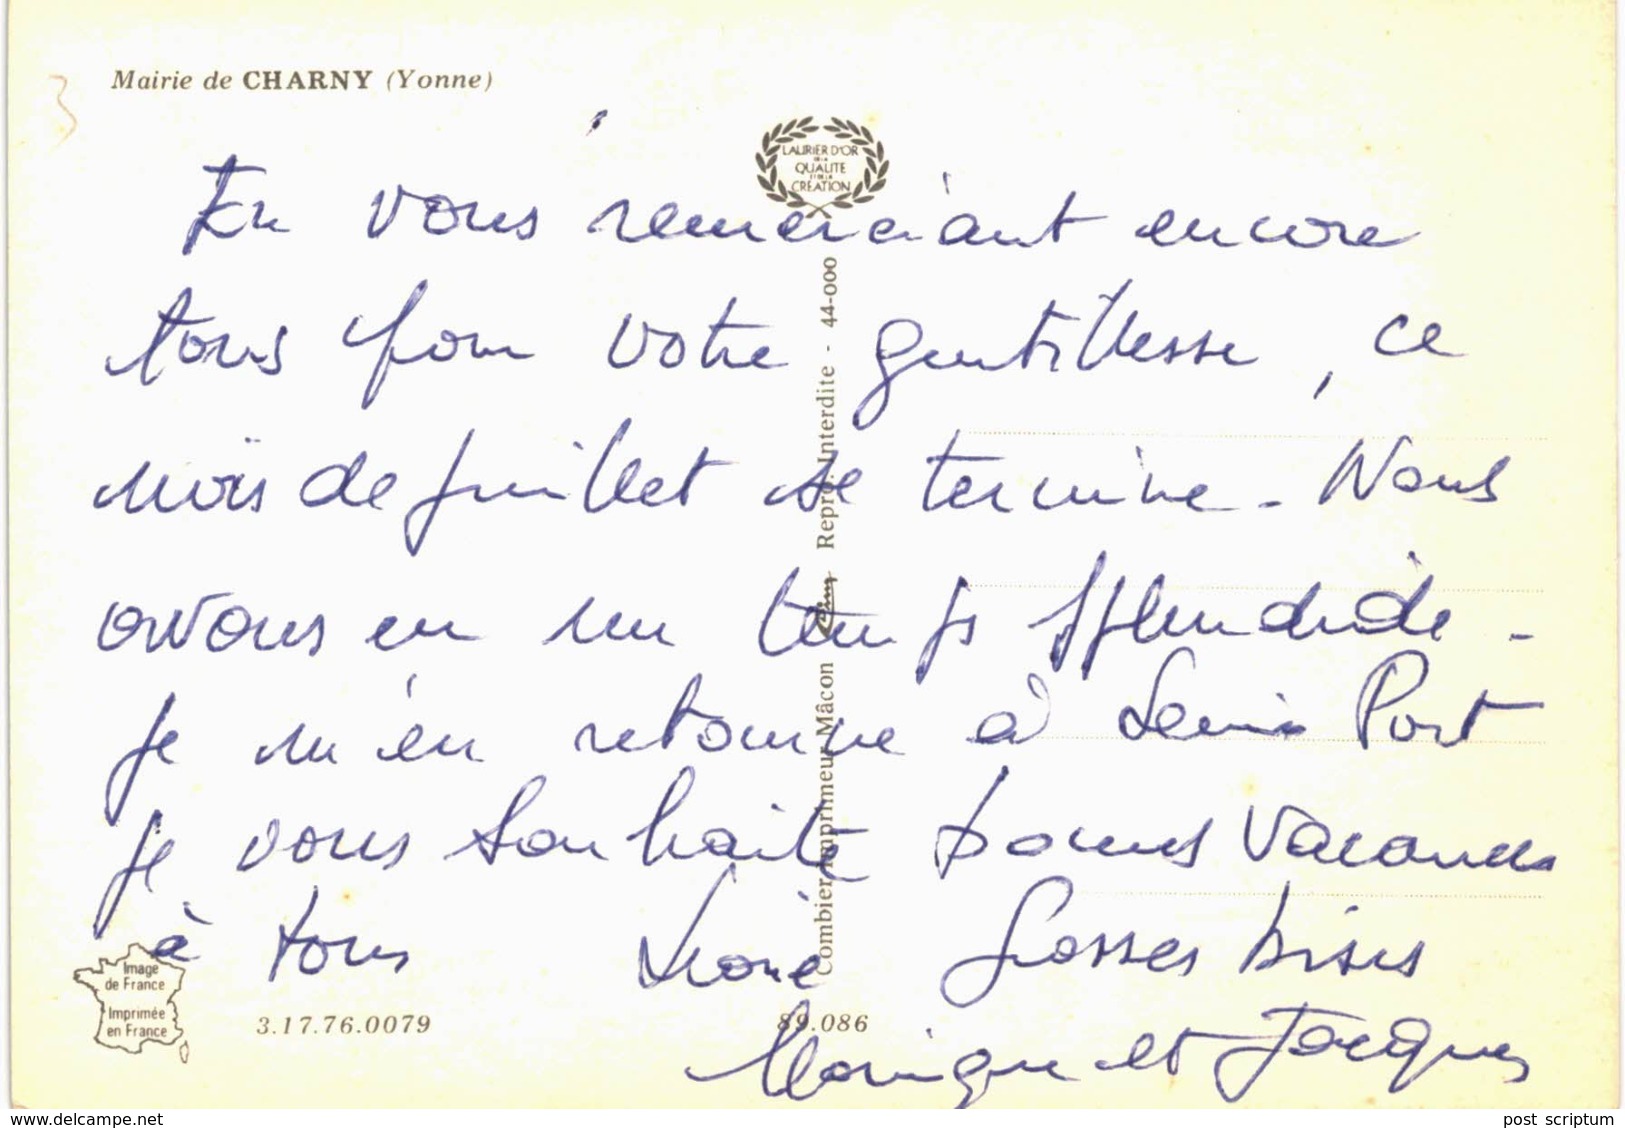 Mairie de CHARNY (Yonne)
3
LAURIER D'OR
DE LA
QUALITE
ET DE LA
CRÉATION
En vous remerciant encore
tous pour votre gentillesse, ce
mois de juillet se termine - Nous
avons eu un temps splendide -
Je m'en retourne à Port
Je vous souhaite bonnes vacances
à tous Grosses bises
Monique et Jacques
Combier Imprimeur Mâcon Repro. Interdite - 44-000
Image
de France
Imprimée
en France
3.17.76.0079
89.086
www.delcampe.net
post scriptum